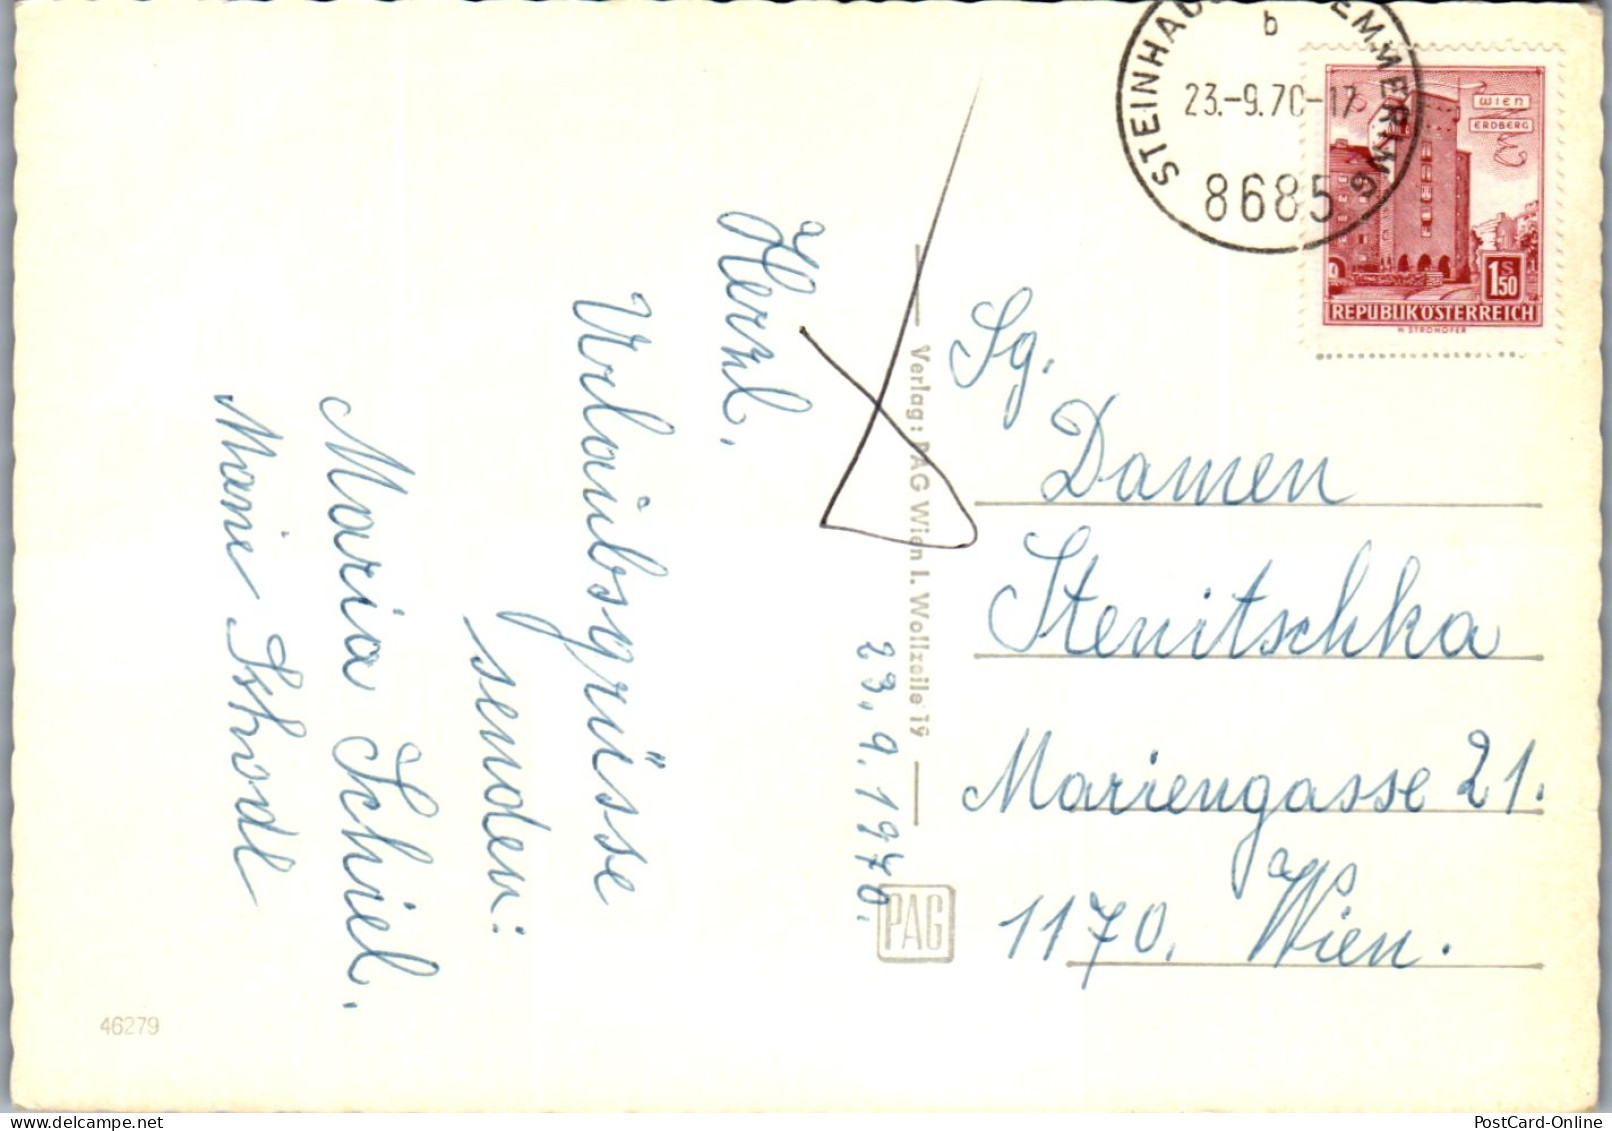 STEINHAUS EMMERING
b
23.-9.70-17
8685
WIEN
ERDBERG
1 S 50
REPUBLIK ÖSTERREICH
H STROHOFER
Herzl.
Urlaubsgrüsse
senden:
Maria Schiel.
Marie
23.9.1970.
Verlag: PAG Wien I. Wollzeile 19
PAG
Sg.
Damen
Stenitschka
Mariengasse 21.
1170. Wien.
46279
PostCard-Online